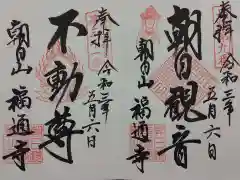 奉拝
令和二年
五月六日
朝日観音
朝日山
福通寺
奉拝
令和二年
五月六日
不動尊
朝日山
福通寺